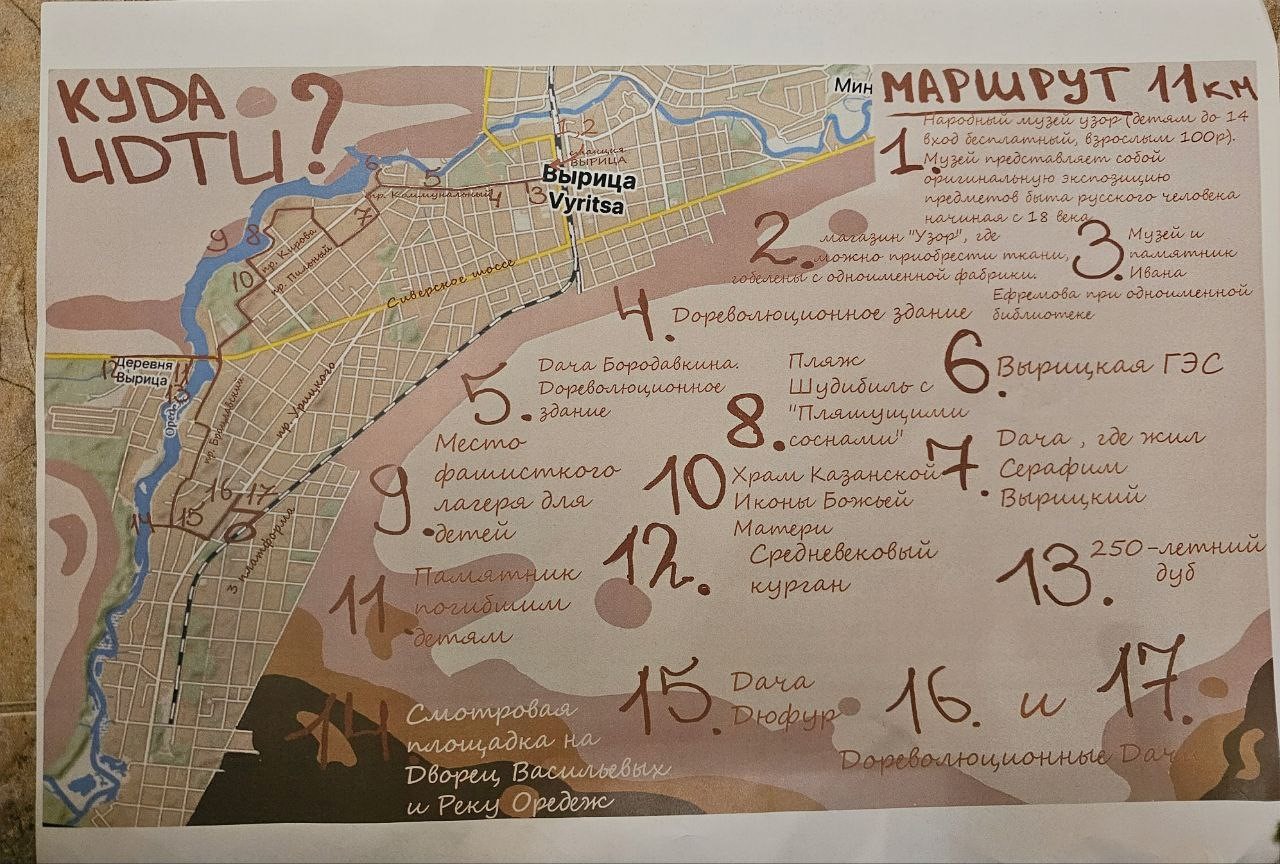 КУДА
ИДТИ?
МАРШРУТ 11 км
1. Народный музей узор (детям до 14
вход бесплатный, взрослым 100р).
Музей представляет собой
оригинальную экспозицию
предметов быта русского человека
начиная с 18 века
2. магазин "Узор", где
можно приобрести ткани,
гобелены с одноименной фабрики.
3. Музей и
памятник
Ивана
Ефремова при одноименной
библиотеке
4. Дореволюционное здание
5. Дача Бородавкина.
Дореволюционное
здание
6. Вырицкая ГЭС
7. Дача, где жил
Серафим
Вырицкий
8. Пляж
Шудибиль с
"Пляшущими
соснами"
9. Место
фашисткого
лагеря для
детей
10 Храм Казанской
Иконы Божьей
Матери
11. Памятник
погибшим
детям
12. Средневековый
курган
13. 250-летний
дуб
14 Смотровая
площадка на
Дворец Васильевых
и Реку Оредеж
15. Дача
Дюфур
16. и 17.
Дореволюционные Дачи
Мин
1,2
станция
ВЫРИЦА
Вырица
Vyritsa
3
4
5
6
7
8
9
10
пр. Коммунальный
пр. Кирова
пр. Пильный
Сиверское шоссе
12
Деревня
Вырица
11
13
Оредеж
пр. Урицкого
14
15
16
17
3 платформа